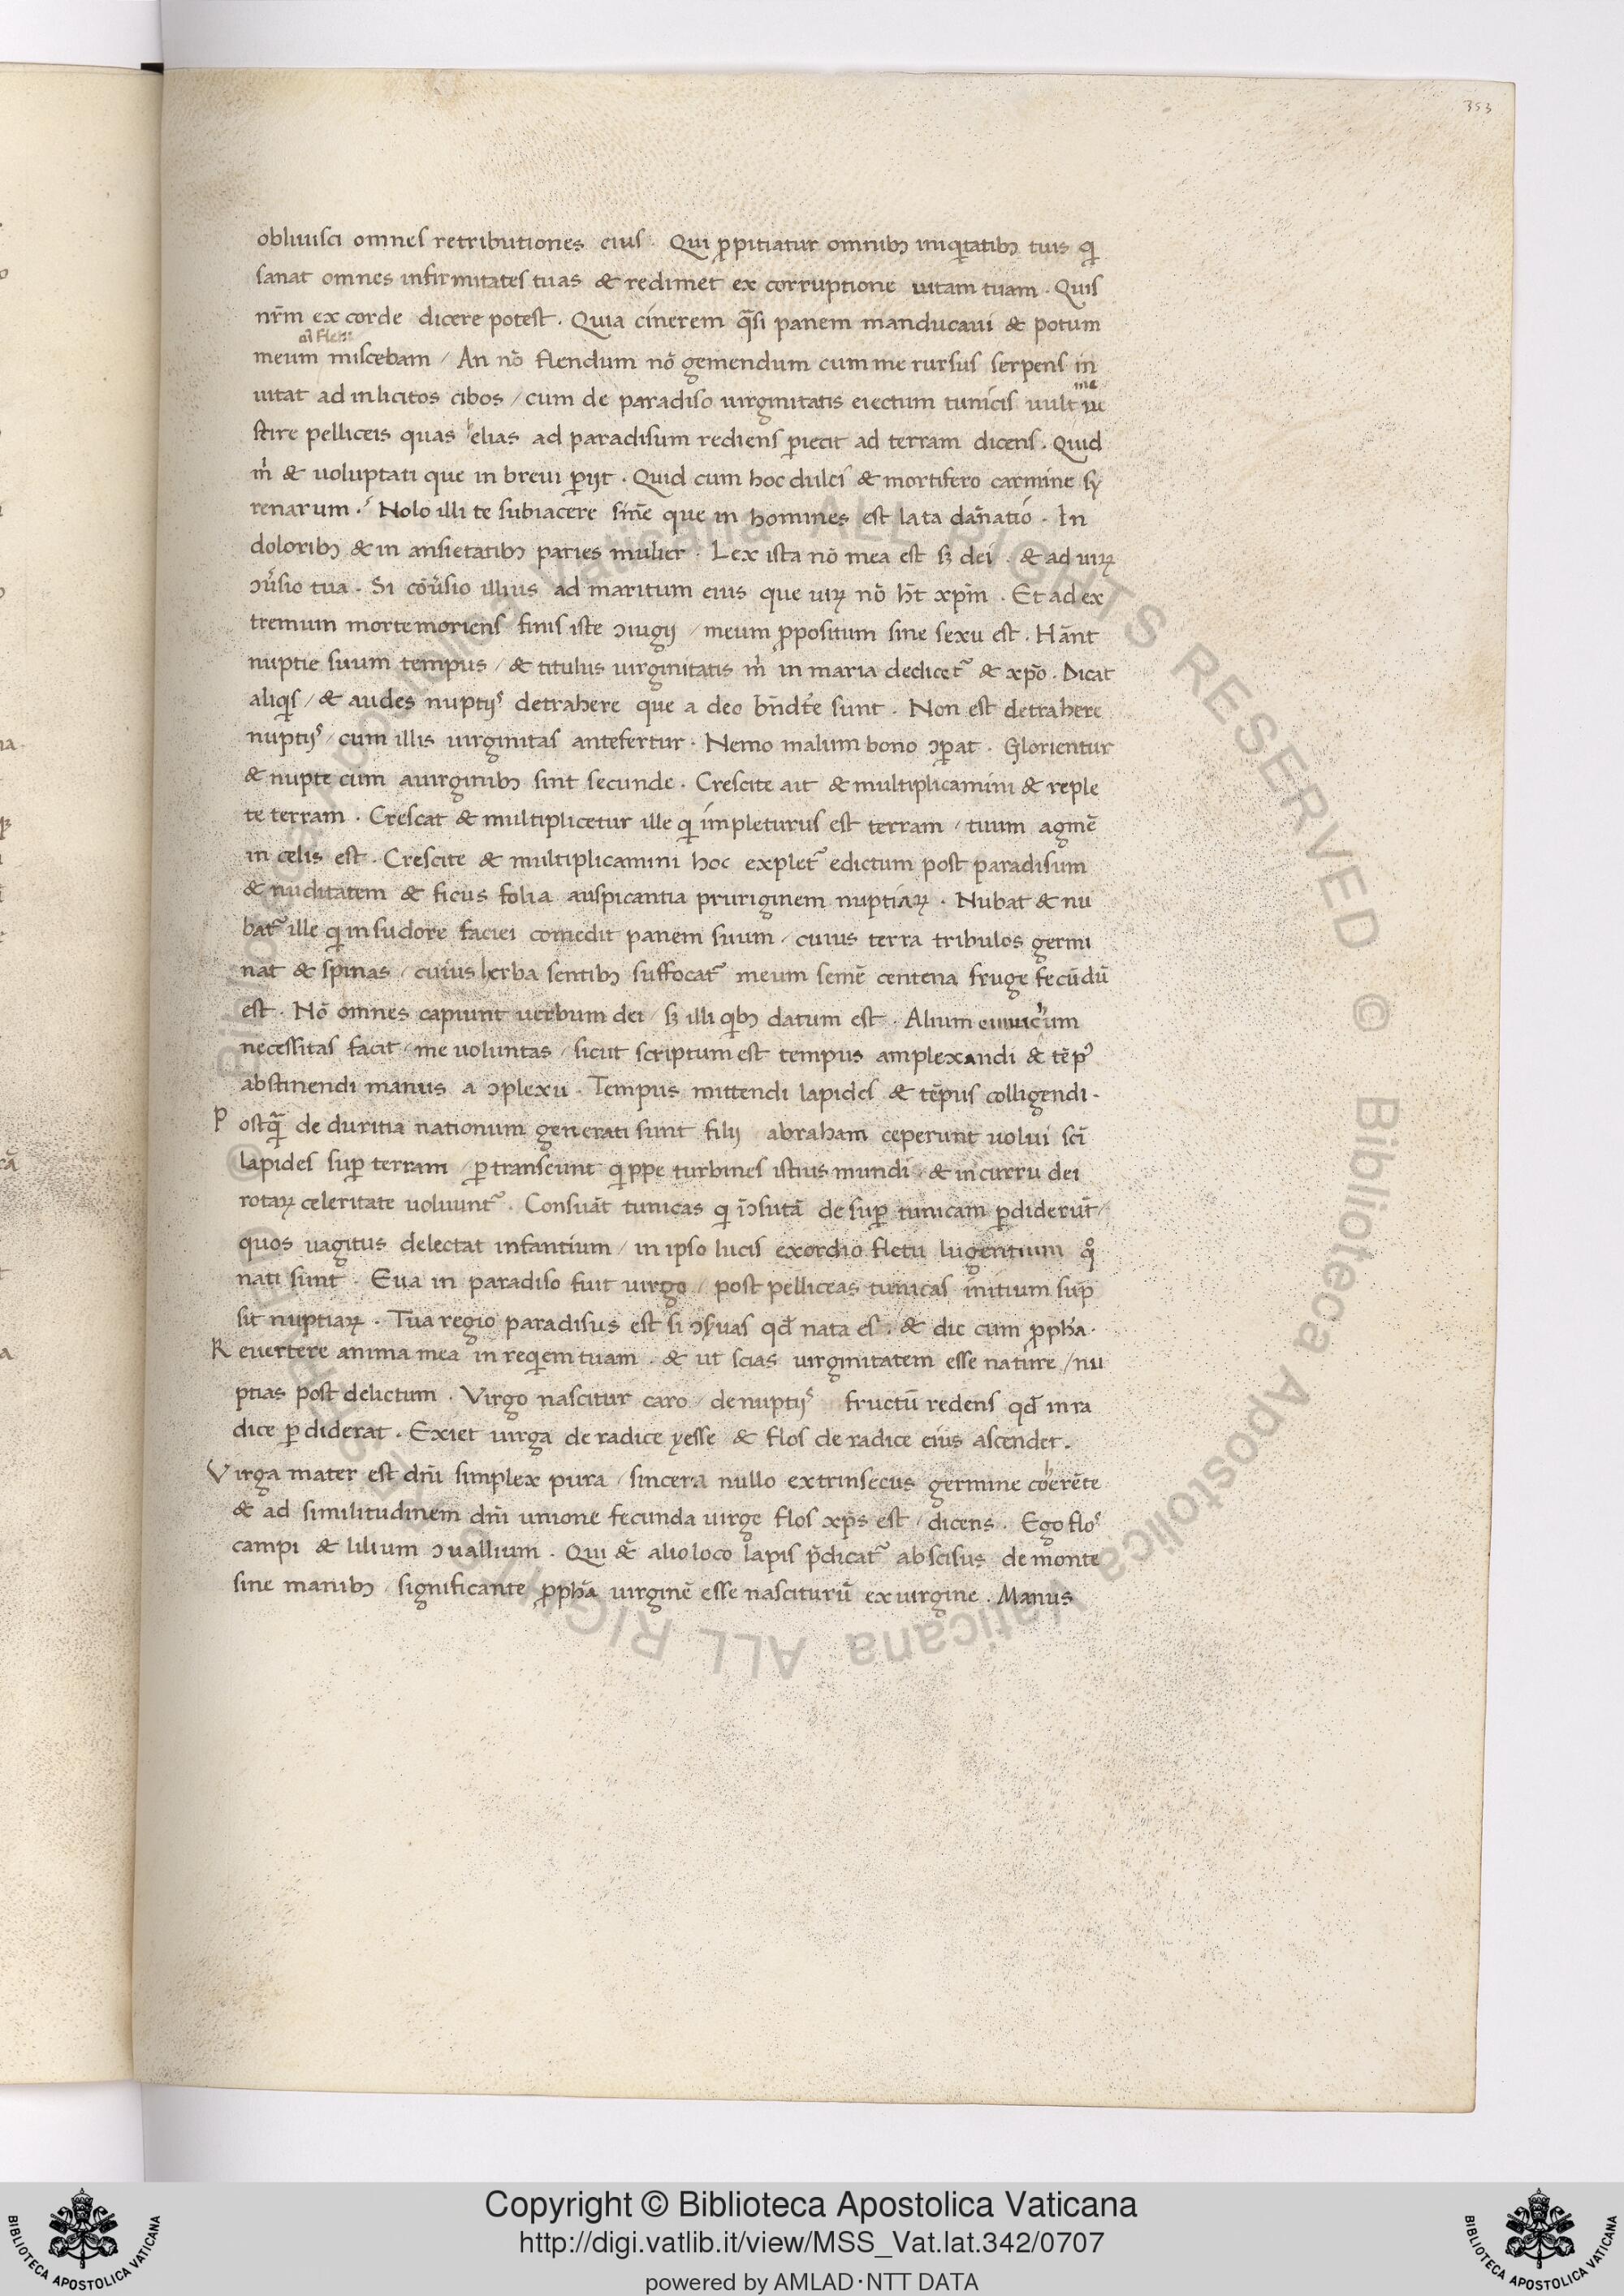 353
obliuisci omnes retributiones eius. Qui ꝓpitiatur omnibꝫ iniqͥtatibꝫ tuis qͥ
sanat omnes infirmitates tuas & redimet ex corruptione uitam tuam. Quis
nr̄m ex corde dicere potest. Quia cinerem qͣsi panem manducaui & potum
meum miscebam / An nō flendum nō gemendum cum me rursus serpens in
uitat ad inlicitos cibos / cum de paradiso uirginitatis eiectum tunicis uult me ue
stire pelliceis quas helias ad paradisum rediens ꝓiecit ad terram dicens. Quid
m̍ & uoluptati que in breui ꝑijt. Quid cum hoc dulci & mortifero carmine sy
renarum. Nolo illi te subiacere sn̄ie que in homines est lata dānatio. In
doloribꝫ & in ansietatibꝫ paries mulier. Lex ista nō mea est sꝫ dei. & ad uirꝝ
ↄuͤsio tua. Si cōuͤsio illius ad maritum eius que uirꝝ nō hт̄ xp̄m. Et ad ex
tremum morte moriens finis iste ↄiugij / meum ꝓpositum sine sexu est. Hānt
nuptie suum tempus / & titulus uirginitatis m̍ in maria dedicet᷑ & xp̄o. Dicat
aliqͥs / & audes nuptijs detrahere que a deo bn̄dc̄te sunt. Non est detrahere
nuptijs / cum illis uirginitas antefertur. Nemo malum bono ↄꝑat. Glorientur
& nupte cum a uirginibꝫ sint secunde. Crescite ait & multiplicamini & reple
te terram. Crescat & multiplicetur ille qͥ impleturus est terram / tuum agmē
in celis est. Crescite & multiplicamini hoc explet᷑ edictum post paradisum
& nuditatem & ficus folia auspicantia pruriginem nuptiaꝝ. Nubat & nu
bat᷑ ille qͥ in sudore faciei comedit panem suum / cuius terra tribulos germi
nat & spinas / cuius herba sentibꝫ suffocat᷑ meum semē centena fruge fecūdū
est. Nō omnes capiunt uerbum dei / sꝫ illi qͥbꝫ datum est. Alium eunuchum
necessitas facit / me uoluntas / sicut scriptum est tempus amplexandi & tēpꝰ
abstinendi manus a ↄplexu. Tempus mittendi lapides & tēpus colligendi.
Postqͣ̄ de duritia nationum generati sunt filij abraham ceperunt uolui sc̄i
lapides suꝑ terram / ꝑtranseunt qͥppe turbines istius mundi / & in curru dei
rotaꝝ celeritate uoluunt᷑. Consuāt tunicas qͥ īↄsutā desuꝑ tunicam ꝑdiderūt /
quos uagitus delectat infantium / in ipso lucis exordio fletu lugentium qͦ
nati sunt. Eua in paradiso fuit uirgo / post pelliceas tunicas initium sūp
sit nuptiaꝝ. Tua regio paradisus est si ↄseruas qd̄ nata es. & dic cum ꝓpha.
Reuertere anima mea in reqͥem tuam. & ut scias uirginitatem esse nature / nu
ptias post delictum. Virgo nascitur caro / de nuptijs fructū redens qd̄ in ra
dice ꝑdiderat. Exiet uirga de radice yesse & flos de radice eius ascendet.
Virga mater est dn̄i simplex pura / sincera nullo extrinsecus germine coherēte
& ad similitudinem dn̄i unione fecunda uirge flos xp̄s est / dicens. Ego flos
campi & lilium ↄuallium. Qui & alio loco lapis p̄dicat᷑ abscisus de monte
sine manibꝫ / significante ꝓpha uirginē esse nasciturū ex uirgine. Manus
Copyright © Biblioteca Apostolica Vaticana
http://digi.vatlib.it/view/MSS_Vat.lat.342/0707
powered by AMLAD·NTT DATA
BIBLIOTECA APOSTOLICA VATICANA
BIBLIOTECA APOSTOLICA VATICANA
© Biblioteca Apostolica Vaticana ALL RIGHTS RESERVED © Biblioteca Apostolica Vaticana ALL RIGHTS RESERVED